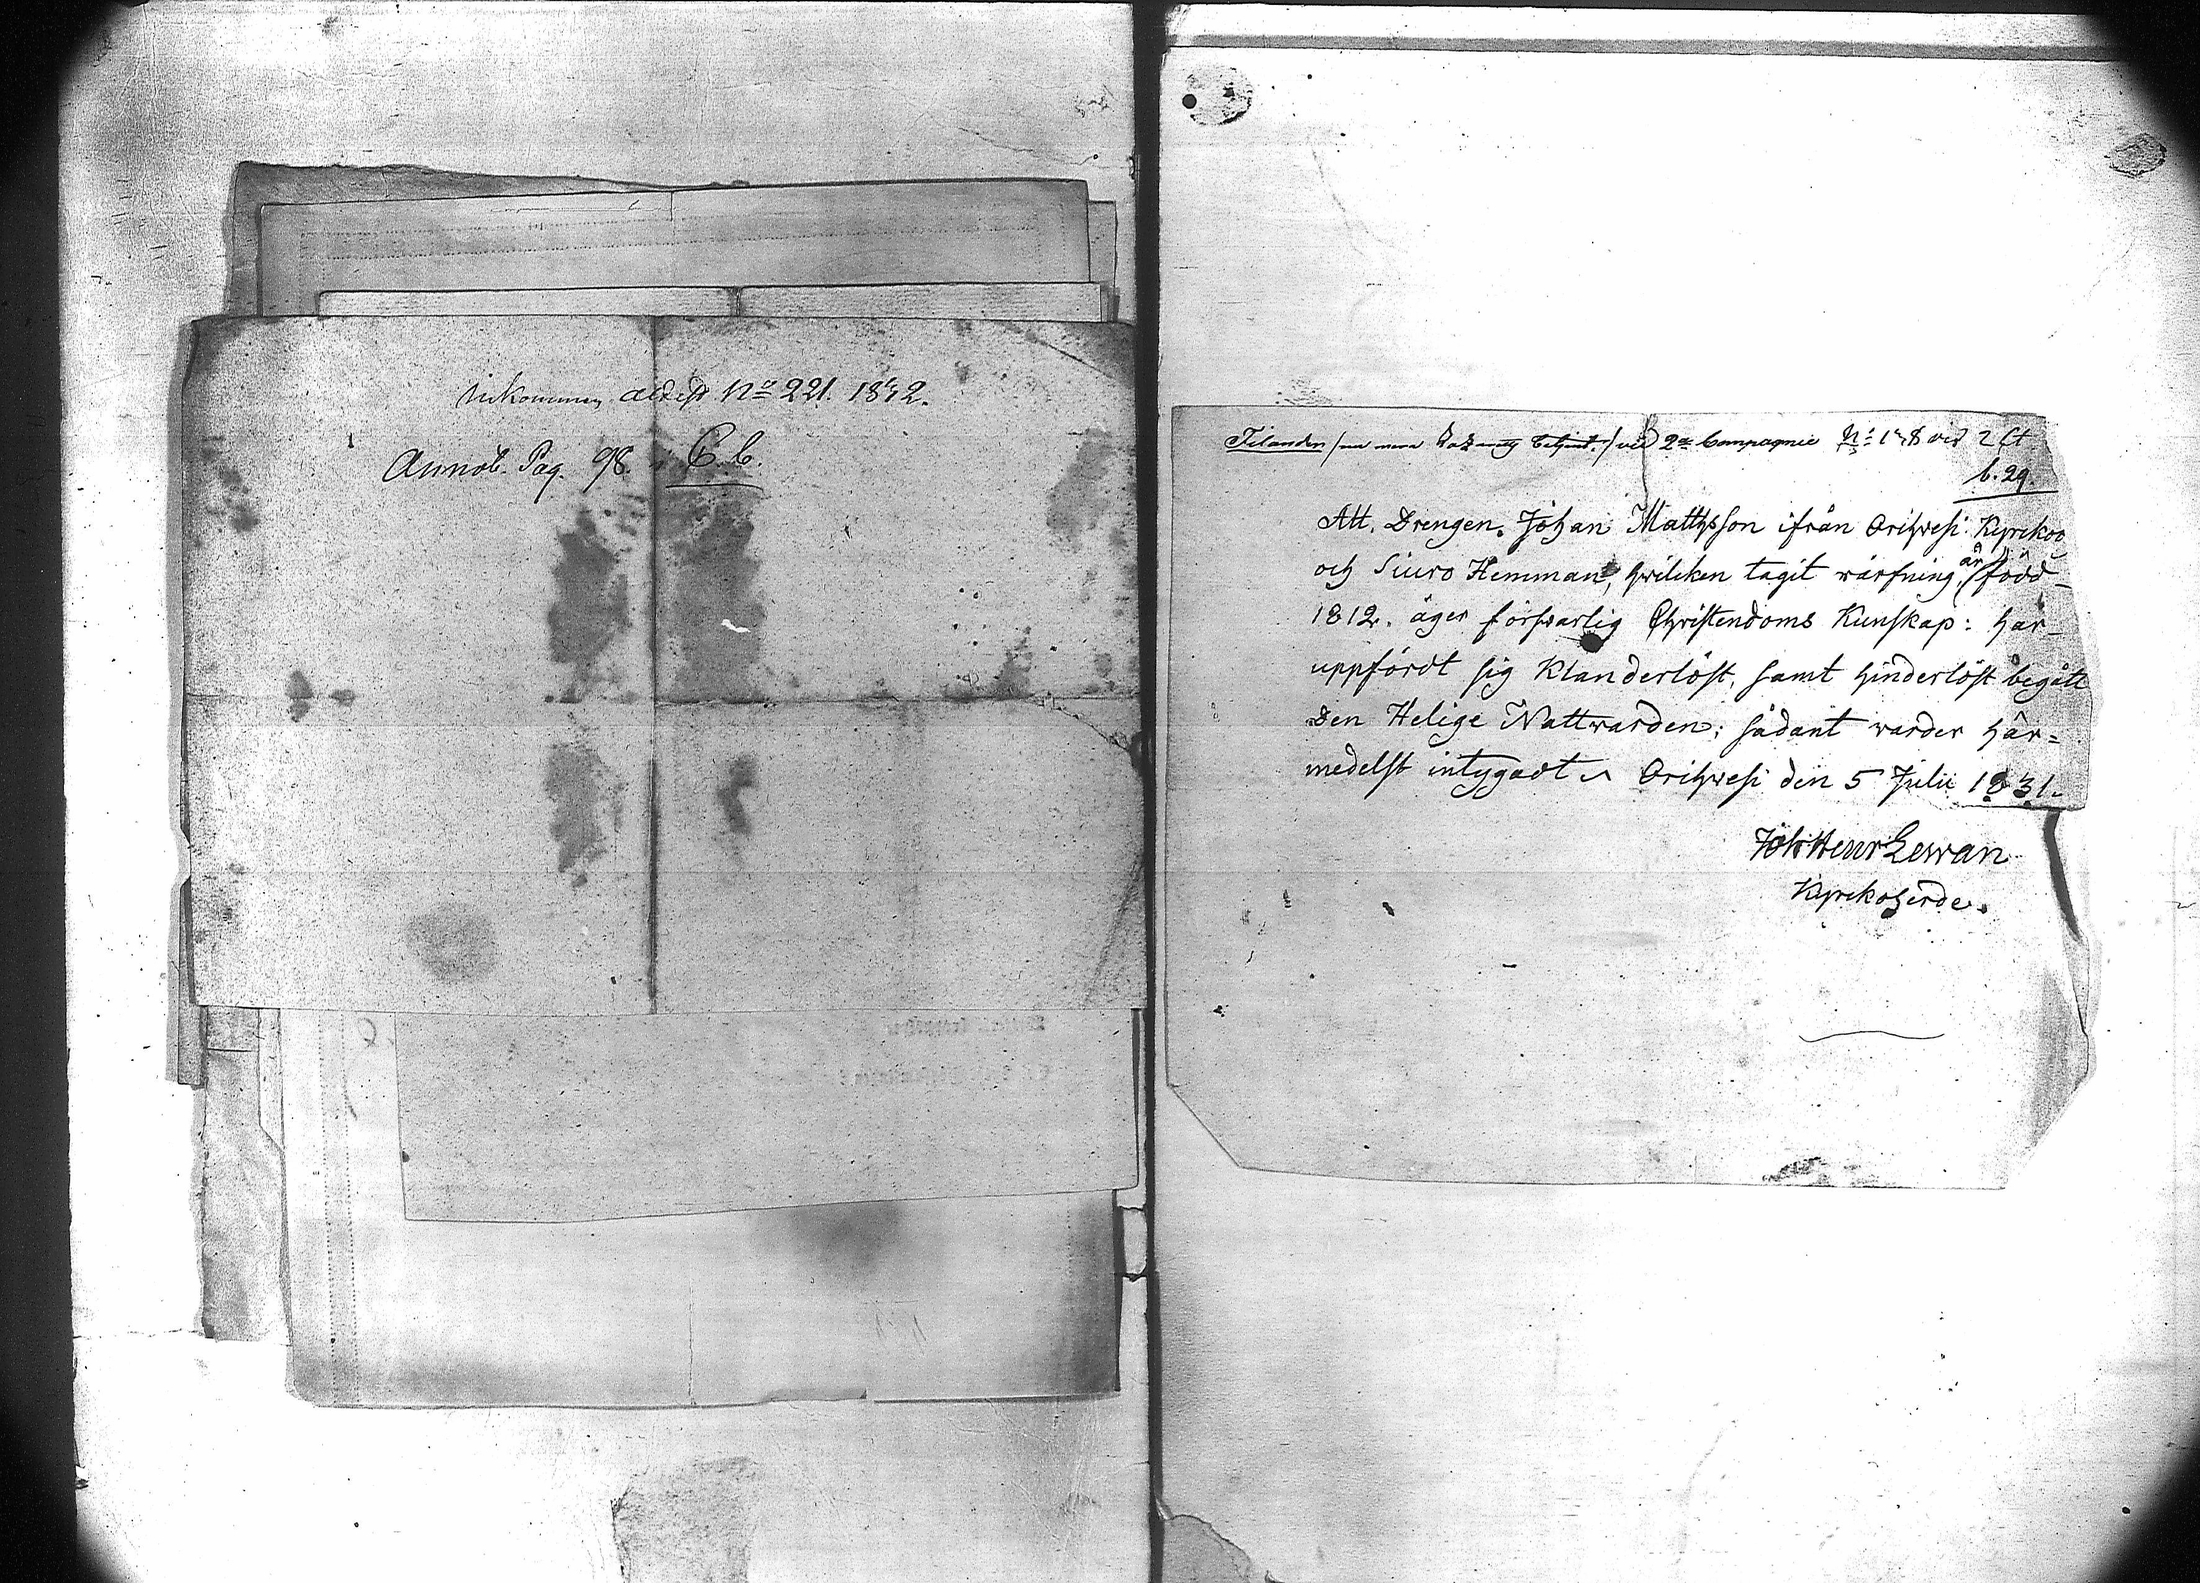 inkommen attest No 221. 1832.
Annot. Pag. 98. i C.b.
Tilander / vid 2a Compagnie No 148 vid 2 Ct
b. 29.
Att. Drengen. Johan Mattsson ifrån Orihvesi Kyrckoo
och Siuro Hemman, hvilcken tagit wärfning, är född
1812. äger försvarlig Christendoms Kunskap: har
uppfördt sig Klanderlöst, samt hinderlöst begått
Den Helige Nattwarden; sådant warder här=
medelst intygadt Orihvesi den 5 Julii 1831.
Joh Henr Lewan
Kyrckoherde.